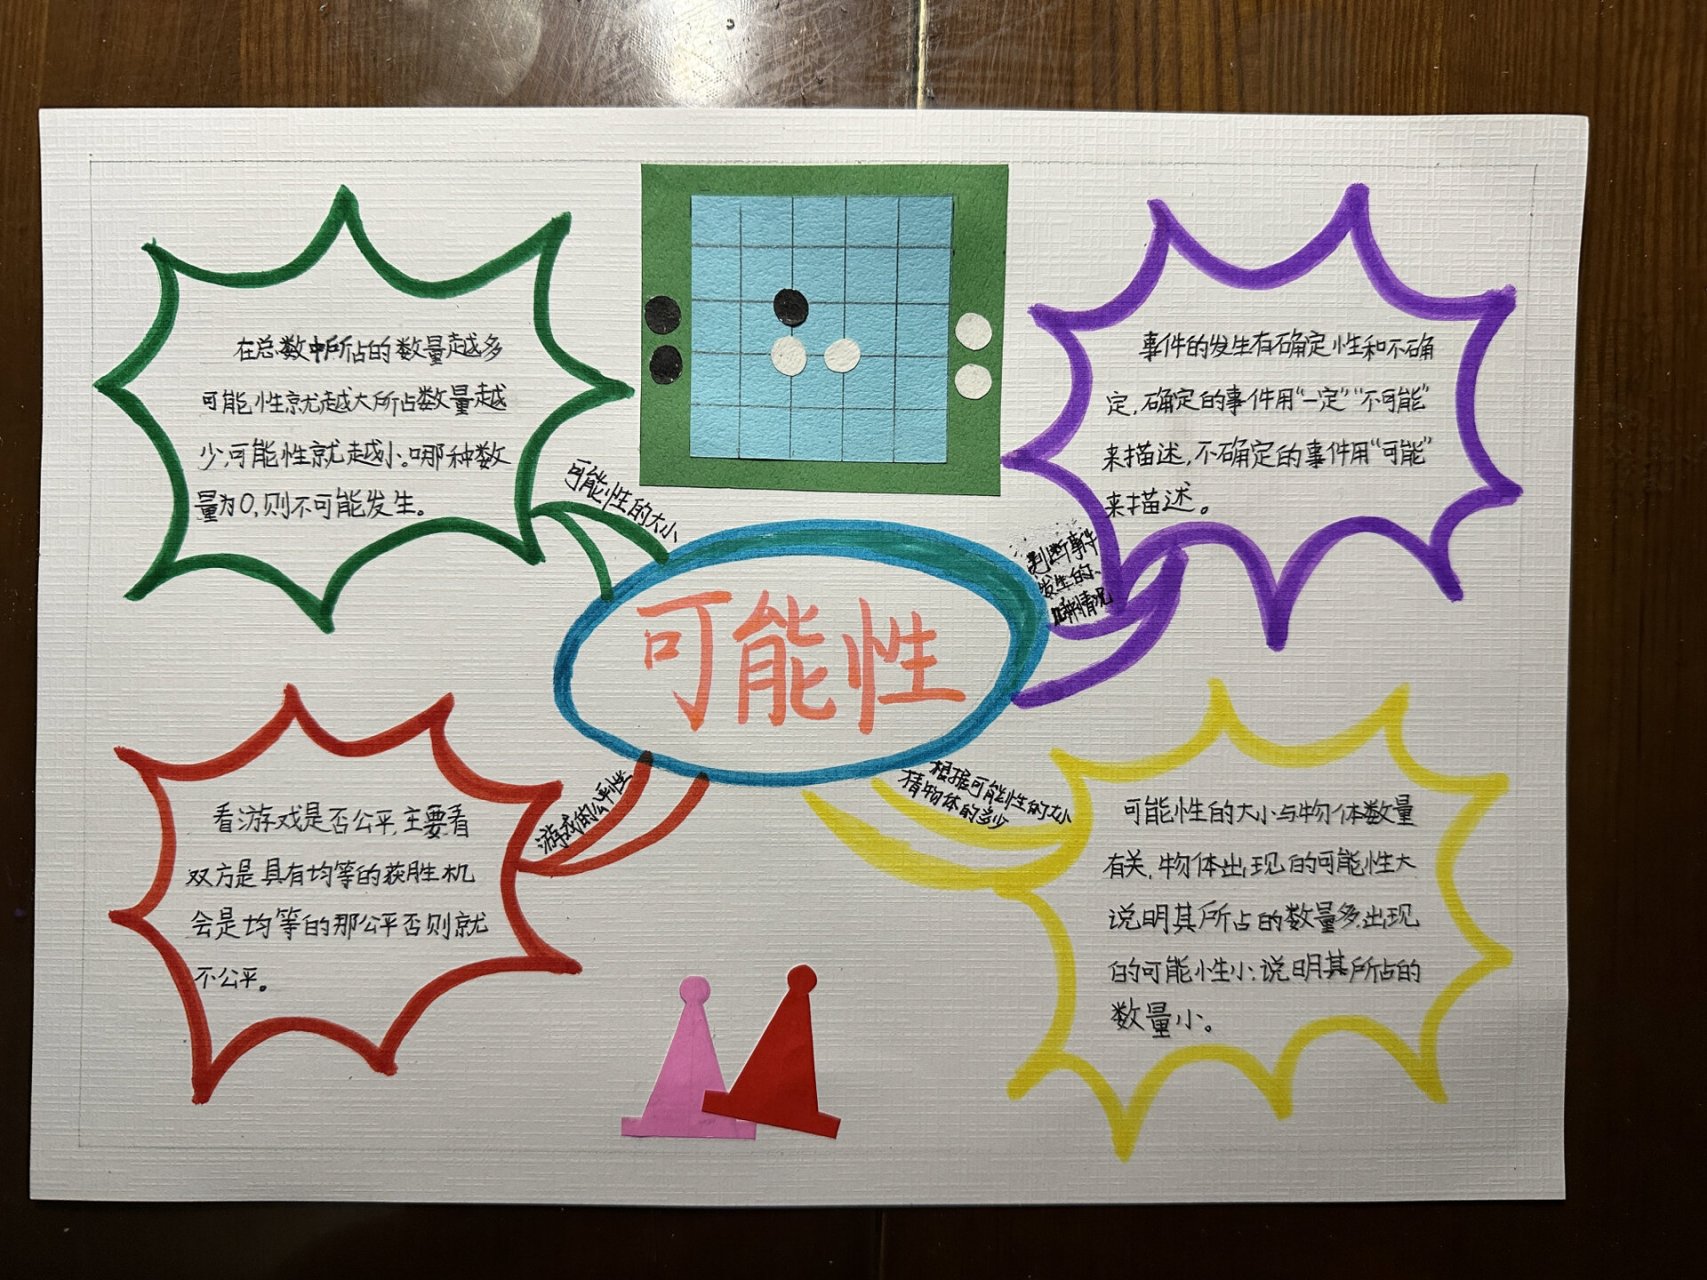 在总数中所占的数量越多
可能性就越大所占数量越
少,可能性就越小。哪种数
量为0,则不可能发生。
可能性的大小
事件的发生有确定性和不确
定,确定的事件用“一定”“不可能”
来描述,不确定的事件用“可能”
来描述。
判断事件
发生的
情况
可能性
看游戏是否公平,主要看
双方是具有均等的获胜机
会是均等的那公平否则就
不公平。
游戏的公平性
根据可能性的大小
猜物体的多少
可能性的大小与物体数量
有关,物体出现的可能性大
说明其所占的数量多,出现
的可能性小:说明其所占的
数量小。